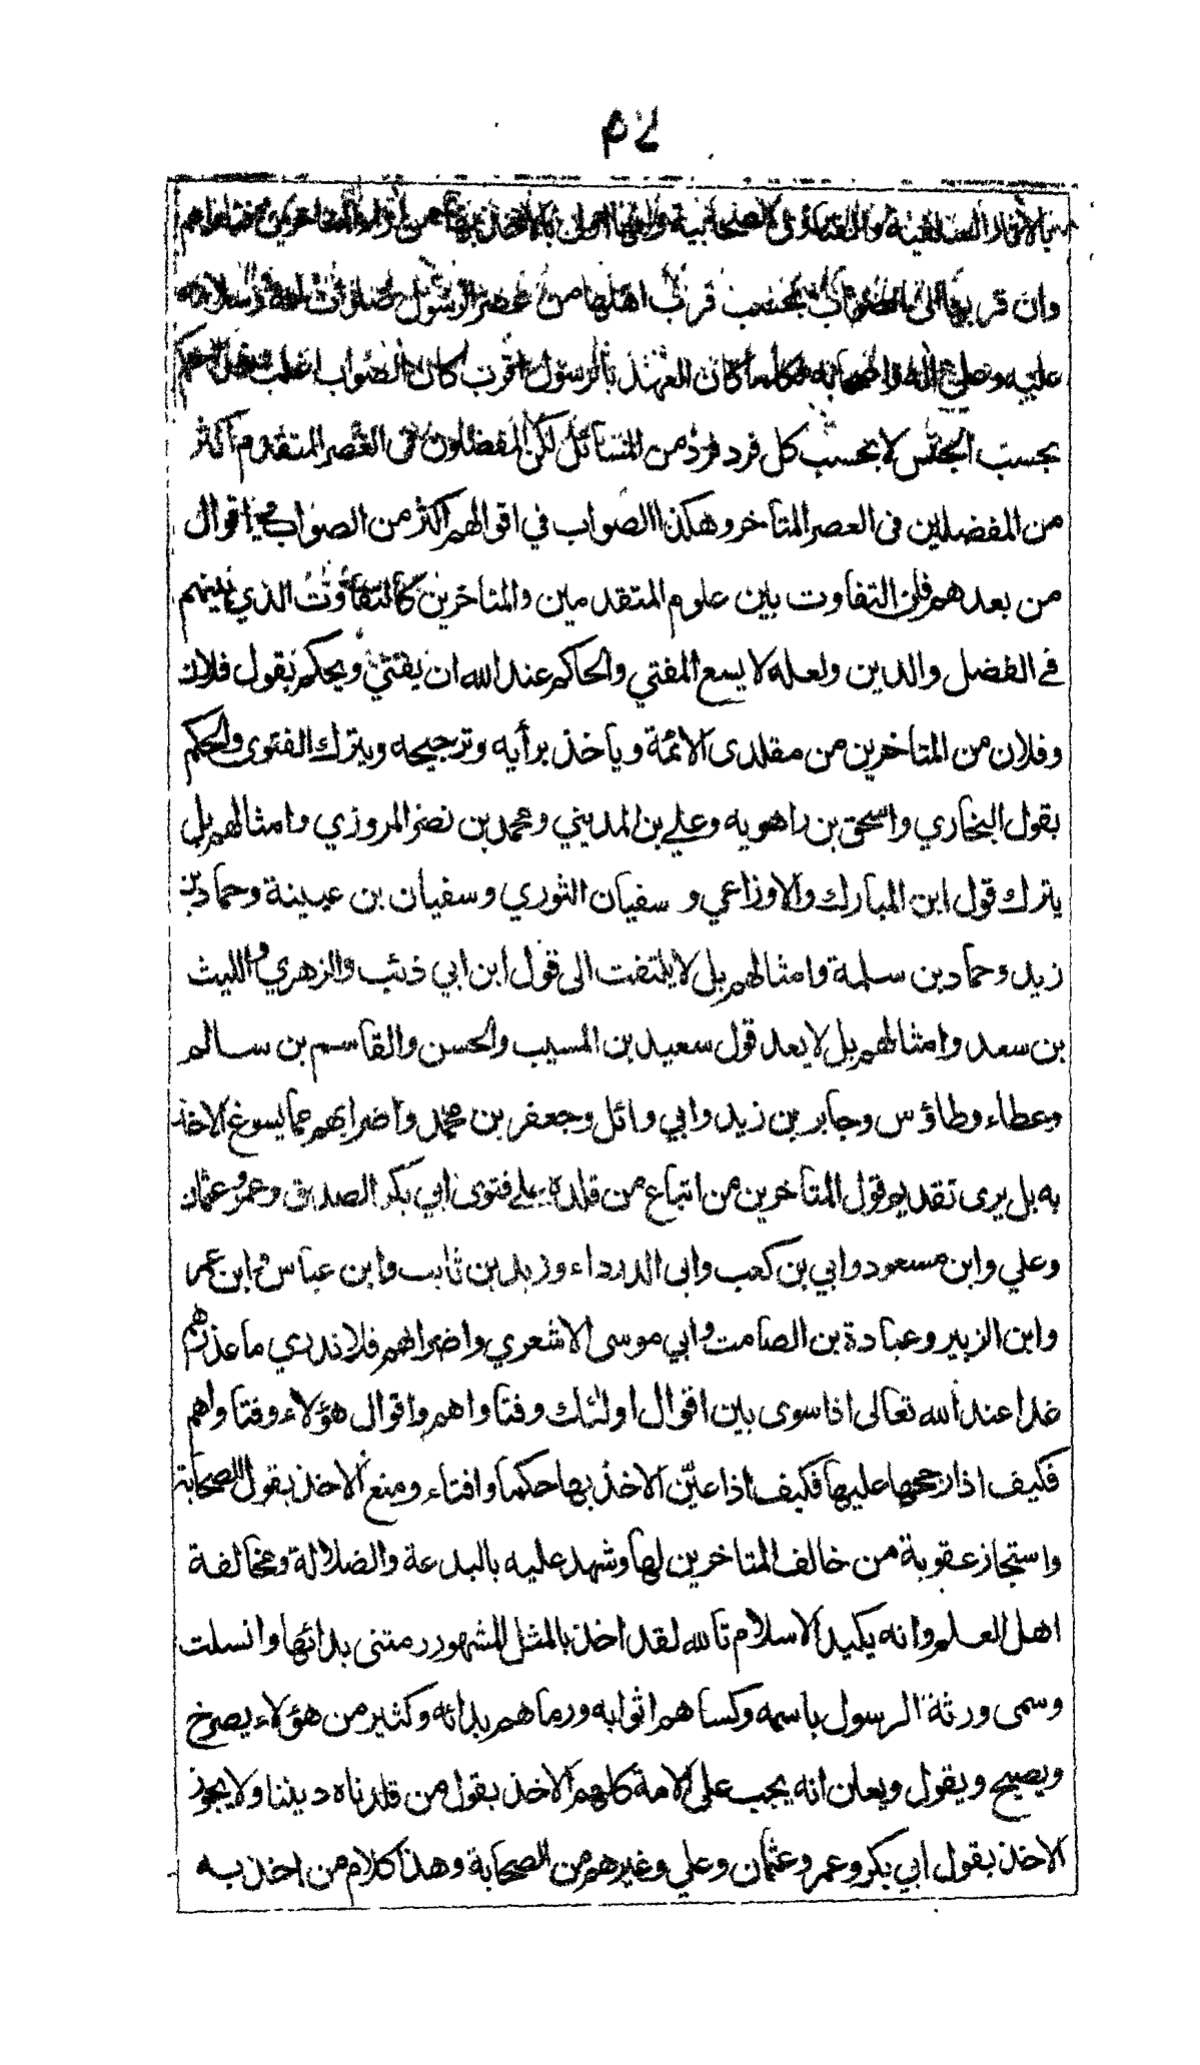 بالآثار السلفية والفتاوى الصحابية وانها اولى بالاخذ بها من آراء المتاخرين وفتاواهم
وان قربها الى الصواب بحسب قرب اهلها من عصر الرسول صلوات الله وسلامه
عليه وعلى آله واصحابه فكلما كان العهد بالرسول اقرب كان الصواب اغلب وهذا حكم
بحسب الجنس لا بحسب كل فرد فرد من المسائل لكن المفضلون فى العصر المتقدم اكثر
من المفضلين فى العصر المتاخر وهكذا الصواب في اقوالهم اكثر من الصواب في اقوال
من بعدهم فان التفاوت بين علوم المتقدمين والمتاخرين كالتفاوت الذي بينهم
في الفضل والدين ولعله لا يسع المفتي والحاكم عند الله ان يفتي ويحكم بقول فلان
وفلان من المتاخرين من مقلدى الائمة وياخذ برأيه وترجيحه ويترك الفتوى والحكم
بقول البخاري واسحق بن راهويه وعلي بن المديني ومحمد بن نصر المروزي وامثالهم بل
يترك قول ابن المبارك والاوزاعي و سفيان الثوري وسفيان بن عيينة وحماد بن
زيد وحماد بن سلمة وامثالهم بل لا يلتفت الى قول ابن ابي ذئب والزهري والليث
بن سعد وامثالهم بل لا يعد قول سعيد بن المسيب والحسن والقاسم بن سالم
وعطاء وطاؤس وجابر بن زيد وابي وائل وجعفر بن محمد واضرابهم مما يسوغ الاخذ
به بل يرى تقديم قول المتاخرين من اتباع من قلده على فتوى ابي بكر الصديق وعمر وعثمان
وعلي وابن مسعود وابي بن كعب وابى الدرداء وزيد بن ثابت وابن عباس وابن عمر
وابن الزبير وعبادة بن الصامت وابي موسى الاشعري واضرابهم فلا ندري ما عذرهم
غدا عند الله تعالى اذا سوى بين اقوال اولئك وفتاواهم واقوال هؤلاء وفتاواهم
فكيف اذا رجحها عليها فكيف اذا عيّن الاخذ بها حكما وافتاء ومنع الاخذ بقول الصحابة
واستجاز عقوبة من خالف المتاخرين لها وشهد عليه بالبدعة والضلالة ومخالفة
اهل العلم وانه يكيد الاسلام تالله لقد اخذ بالمثل المشهور رمتنى بدائها وانسلت
وسمى ورثة الرسول باسمه وكساهم اثوابه ورماهم بدائه وكثير من هؤلاء يصرخ
ويصيح ويقول ويعلن انه يجب على الامة كلهم الاخذ بقول من قلدناه ديننا ولا يجوز
الاخذ بقول ابي بكر وعمر وعثمان وعلي وغيرهم من الصحابة وهذا كلام من اخذ به